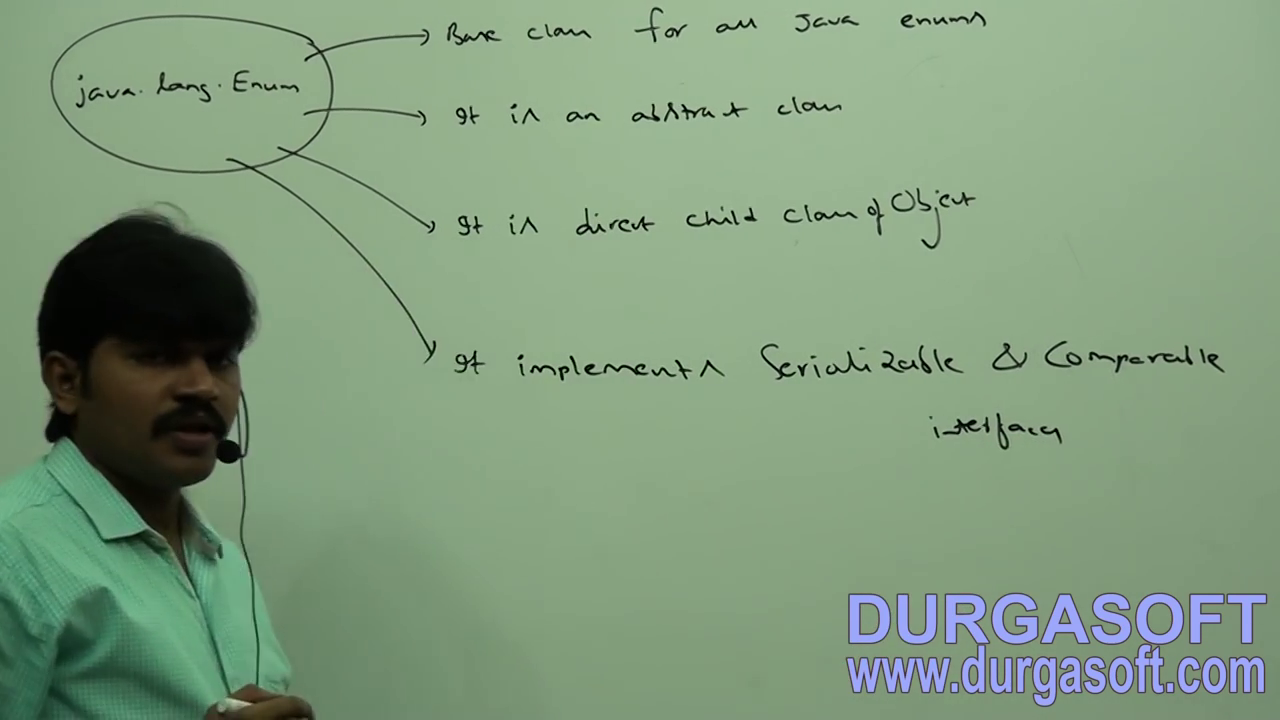 java.lang.Enum
Base class for all Java enums
It is an abstract class
It is direct child class of Object
It implements Serializable & Comparable
interfaces
DURGASOFT
www.durgasoft.com